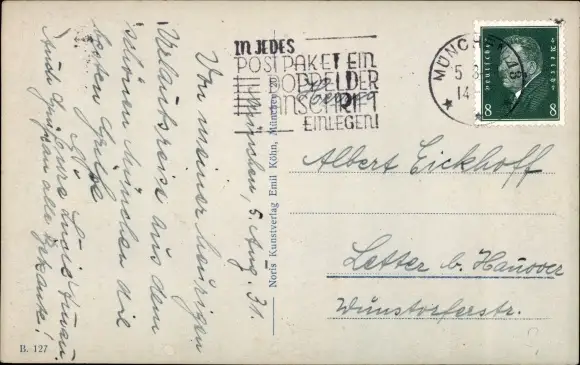 IN JEDES
POSTPAKET EIN
DOPPEL DER
ANSCHRIFT
EINLEGEN!
MÜNCHEN
5.8
14
Deutsches Reich
8 8
Herrn
Albert Eickhoff
Letter b. Hannover
Wunstorferstr.
Noris Kunstverlag Emil Köhn, München 2
München, 5. Aug. 31.
Von meiner heurigen
Urlaubsreise aus dem
schönen München die
besten Grüße
Luis
Auch Grüße an alle Bekannte!
B. 127